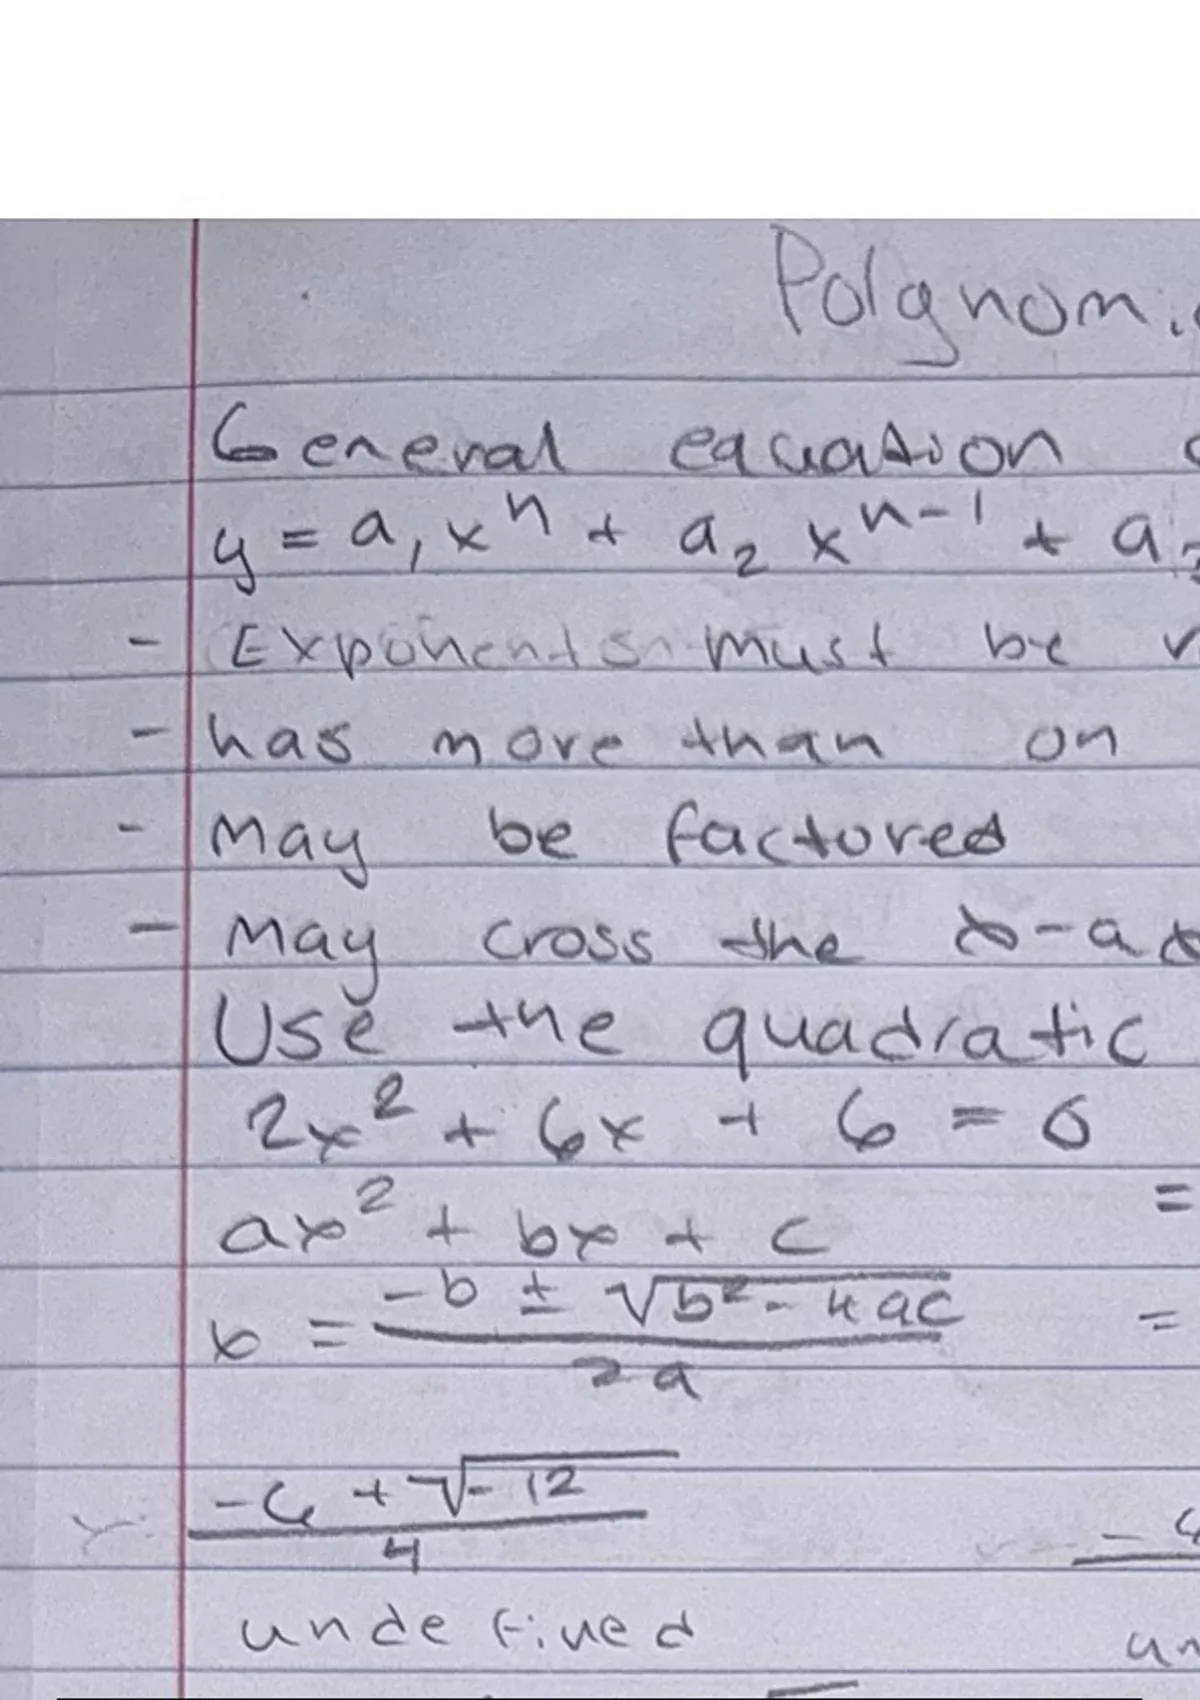 Polynomi
General equation
y = a₁xⁿ + a₂xⁿ⁻¹ + a
- Exponents must be
- has more than on
- May be factored
- May cross the x-ax
Use the quadratic
2x² + 6x + 6 = 0
ax² + bx + c =
x = (-b ± √(b² - 4ac)) / 2a =
(-6 + √(-12)) / 4
undefined un